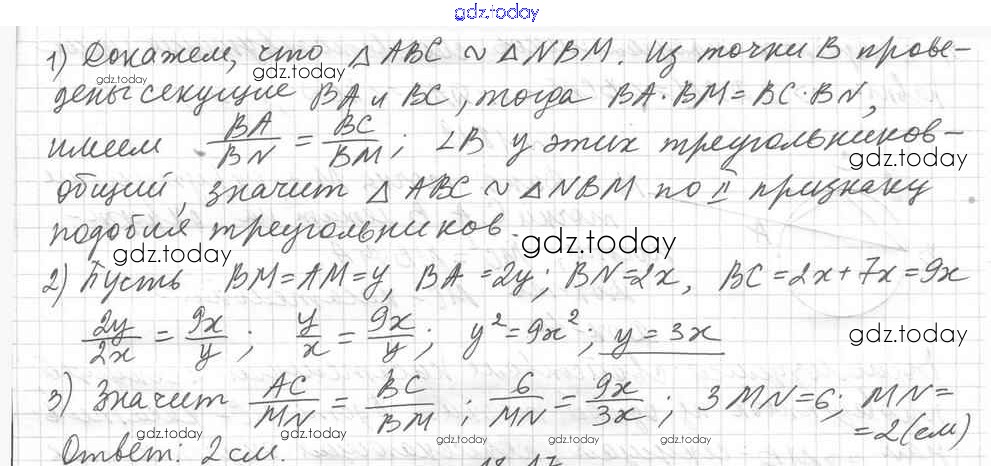 gdz.today
1) Докажем, что △ABC ~ △NBM. Из точки B прове-
gdz.today gdz.today gdz.today
дены секущие BA и BC, тогда BA·BM=BC·BN,
имеем BA/BN = BC/BM; ∠B у этих треугольников-
gdz.today
общий, значит △ABC ~ △NBM по II признаку
подобия треугольников.
gdz.today gdz.today
2) Пусть BM=AM=y, BA=2y; BN=2x, BC=2x+7x=9x
2y/2x = 9x/y; y/x = 9x/y; y²=9x²; y=3x
gdz.today
3) Значит AC/MN = BC/BM; 6/MN = 9x/3x; 3MN=6; MN=
=2(см)
gdz.today gdz.today gdz.today gdz.today gdz.today
Ответ: 2 см.